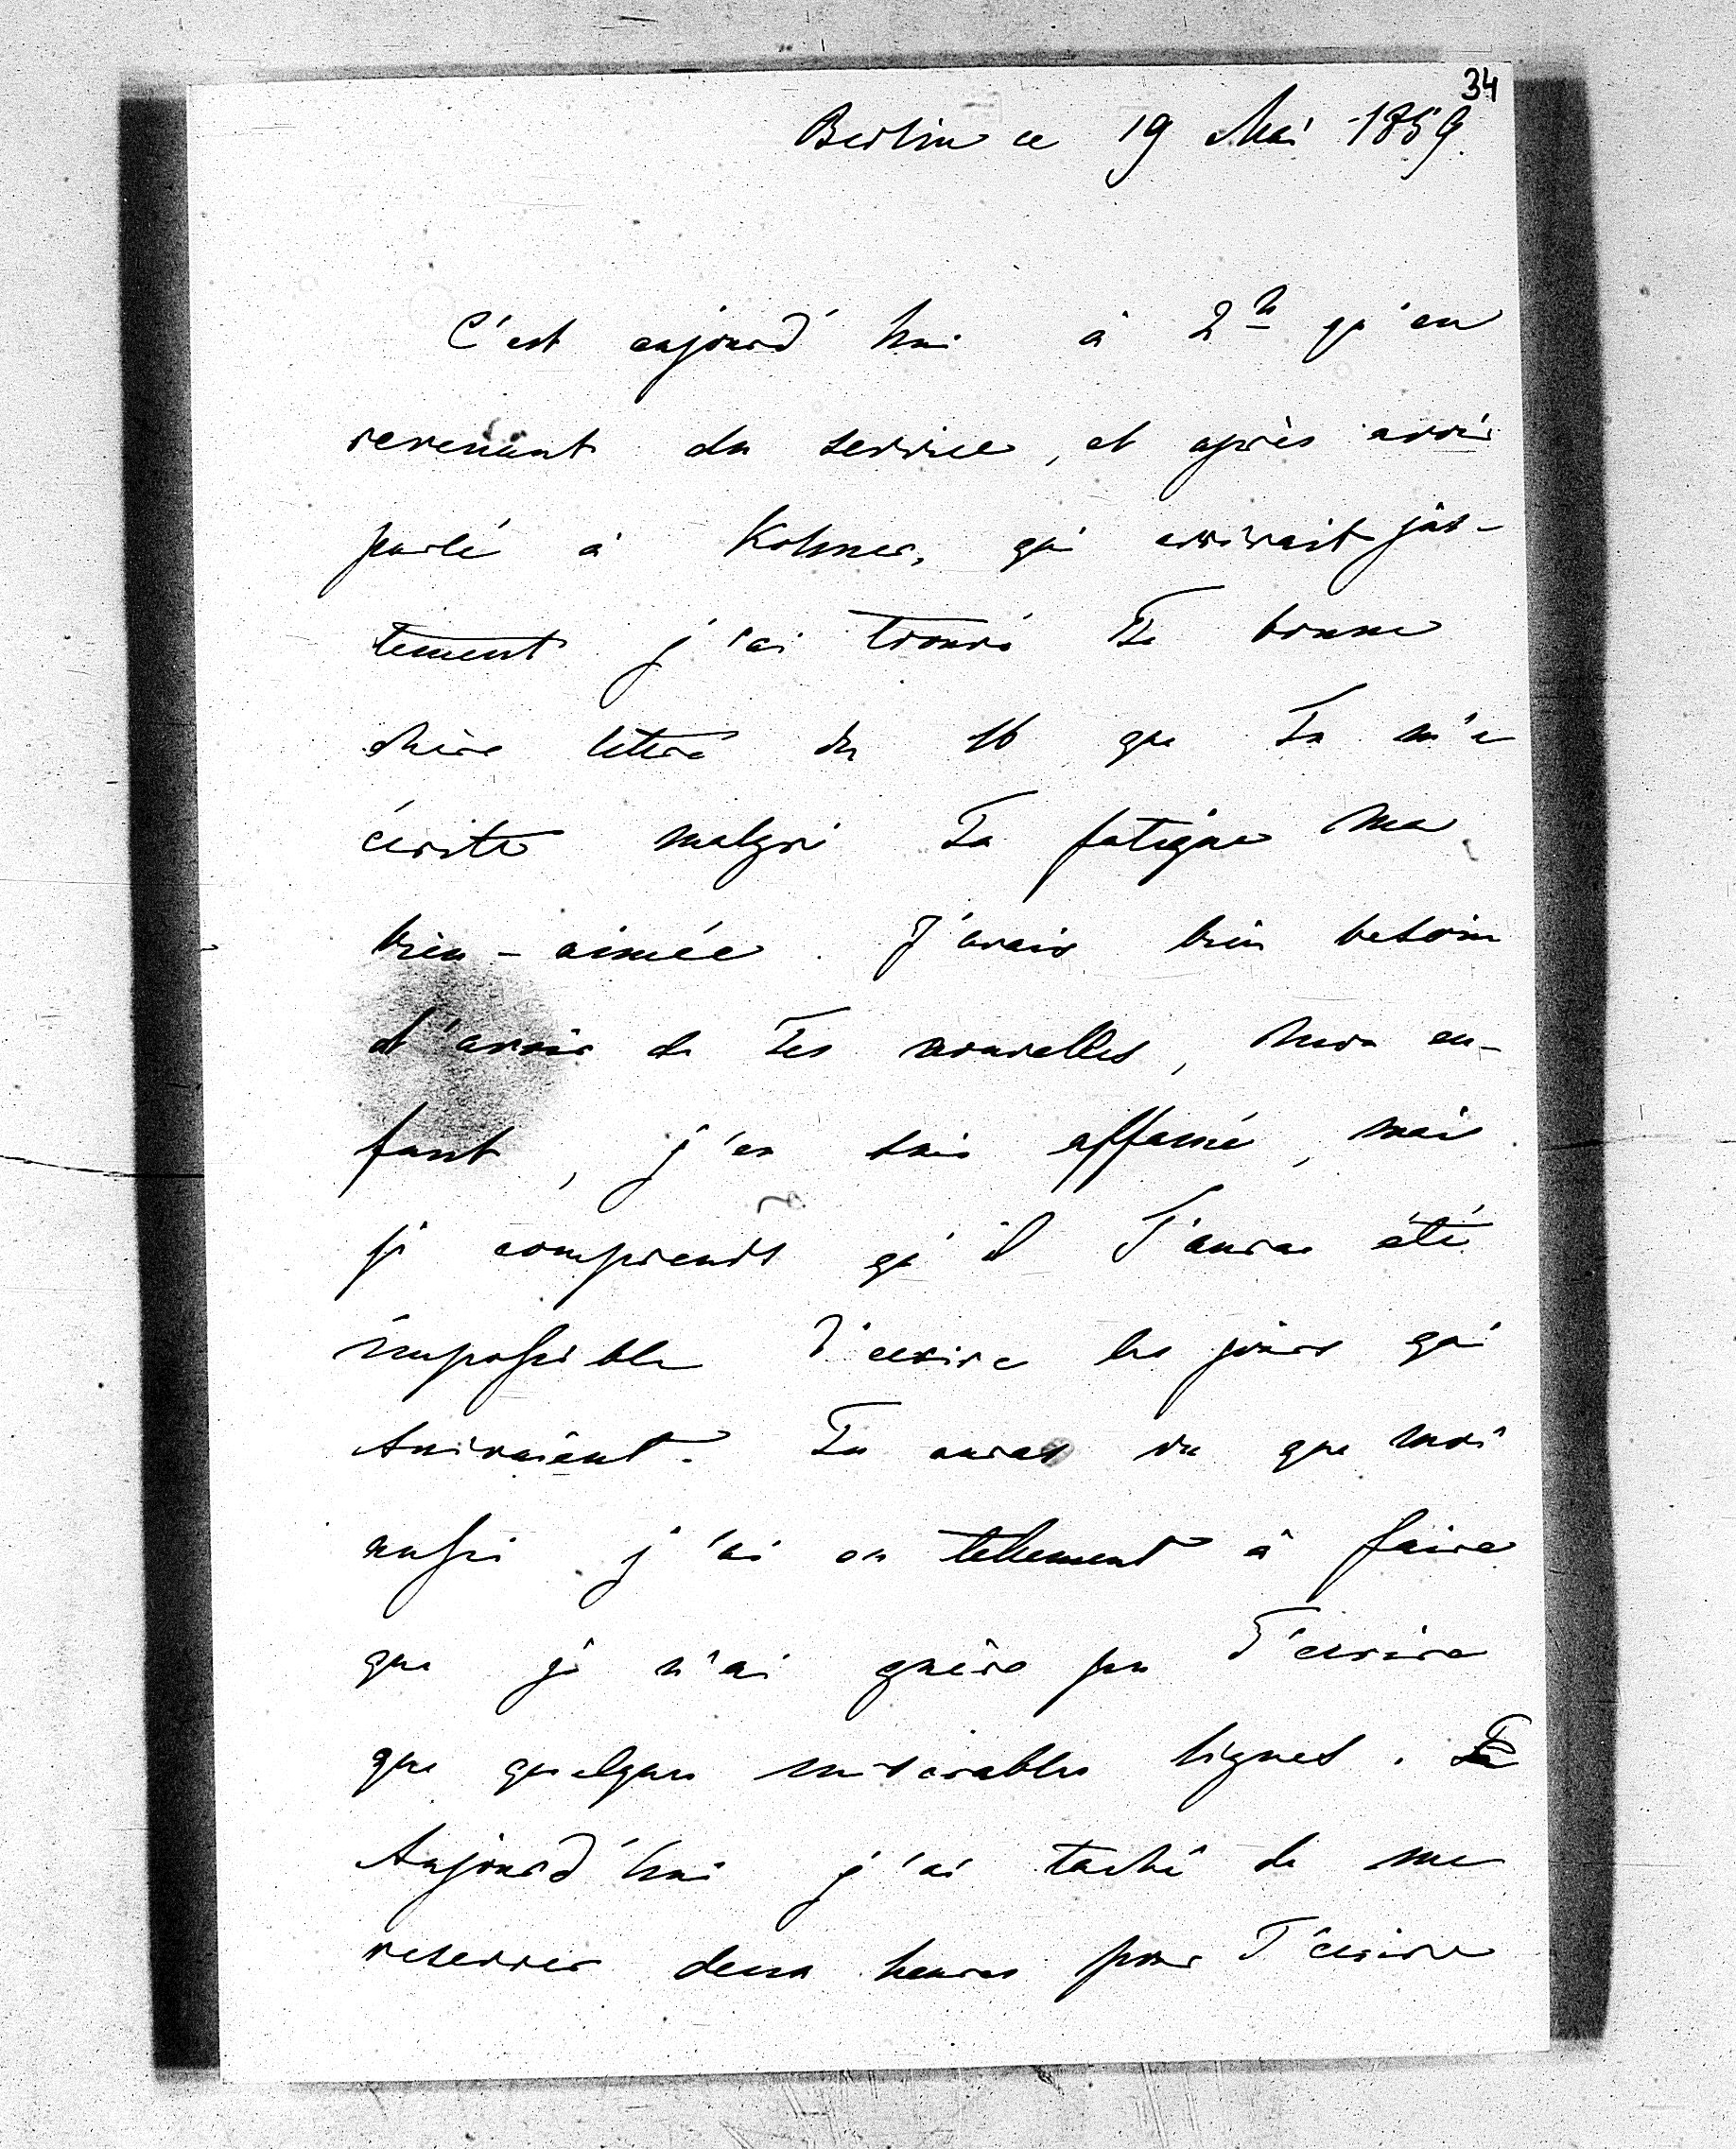 34
Berlin ce 19 Mai 1859.
C'est aujourd'hui à 2h qu'en
revenant du service, et après avoir
parlé à Kohner, qui arrivait jus-
tement j'ai trouvé Ta bonne
chère lettre du 16 que Tu m'a
écrite malgré Ta fatigue ma
bien-aimée. J'avais bien besoin
d'avoir de Tes nouvelles, mon en-
fant, j'en suis affamé, mais
je comprends qu'il T'aura été
impossible d'écrire les jours qui
suivaient. Tu auras vu que moi
aussi j'ai eu tellement à faire
que je n'ai guère pu T'écrire
que quelques misérables lignes.
Aujourd'hui j'ai taché de me
reserver deux heures pour T'écrire